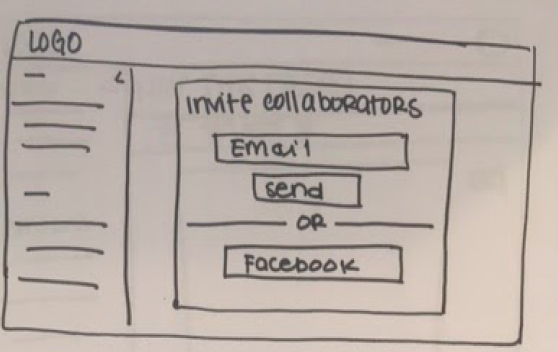 LOGO
<
Invite collaborators
Email
send
OR
Facebook